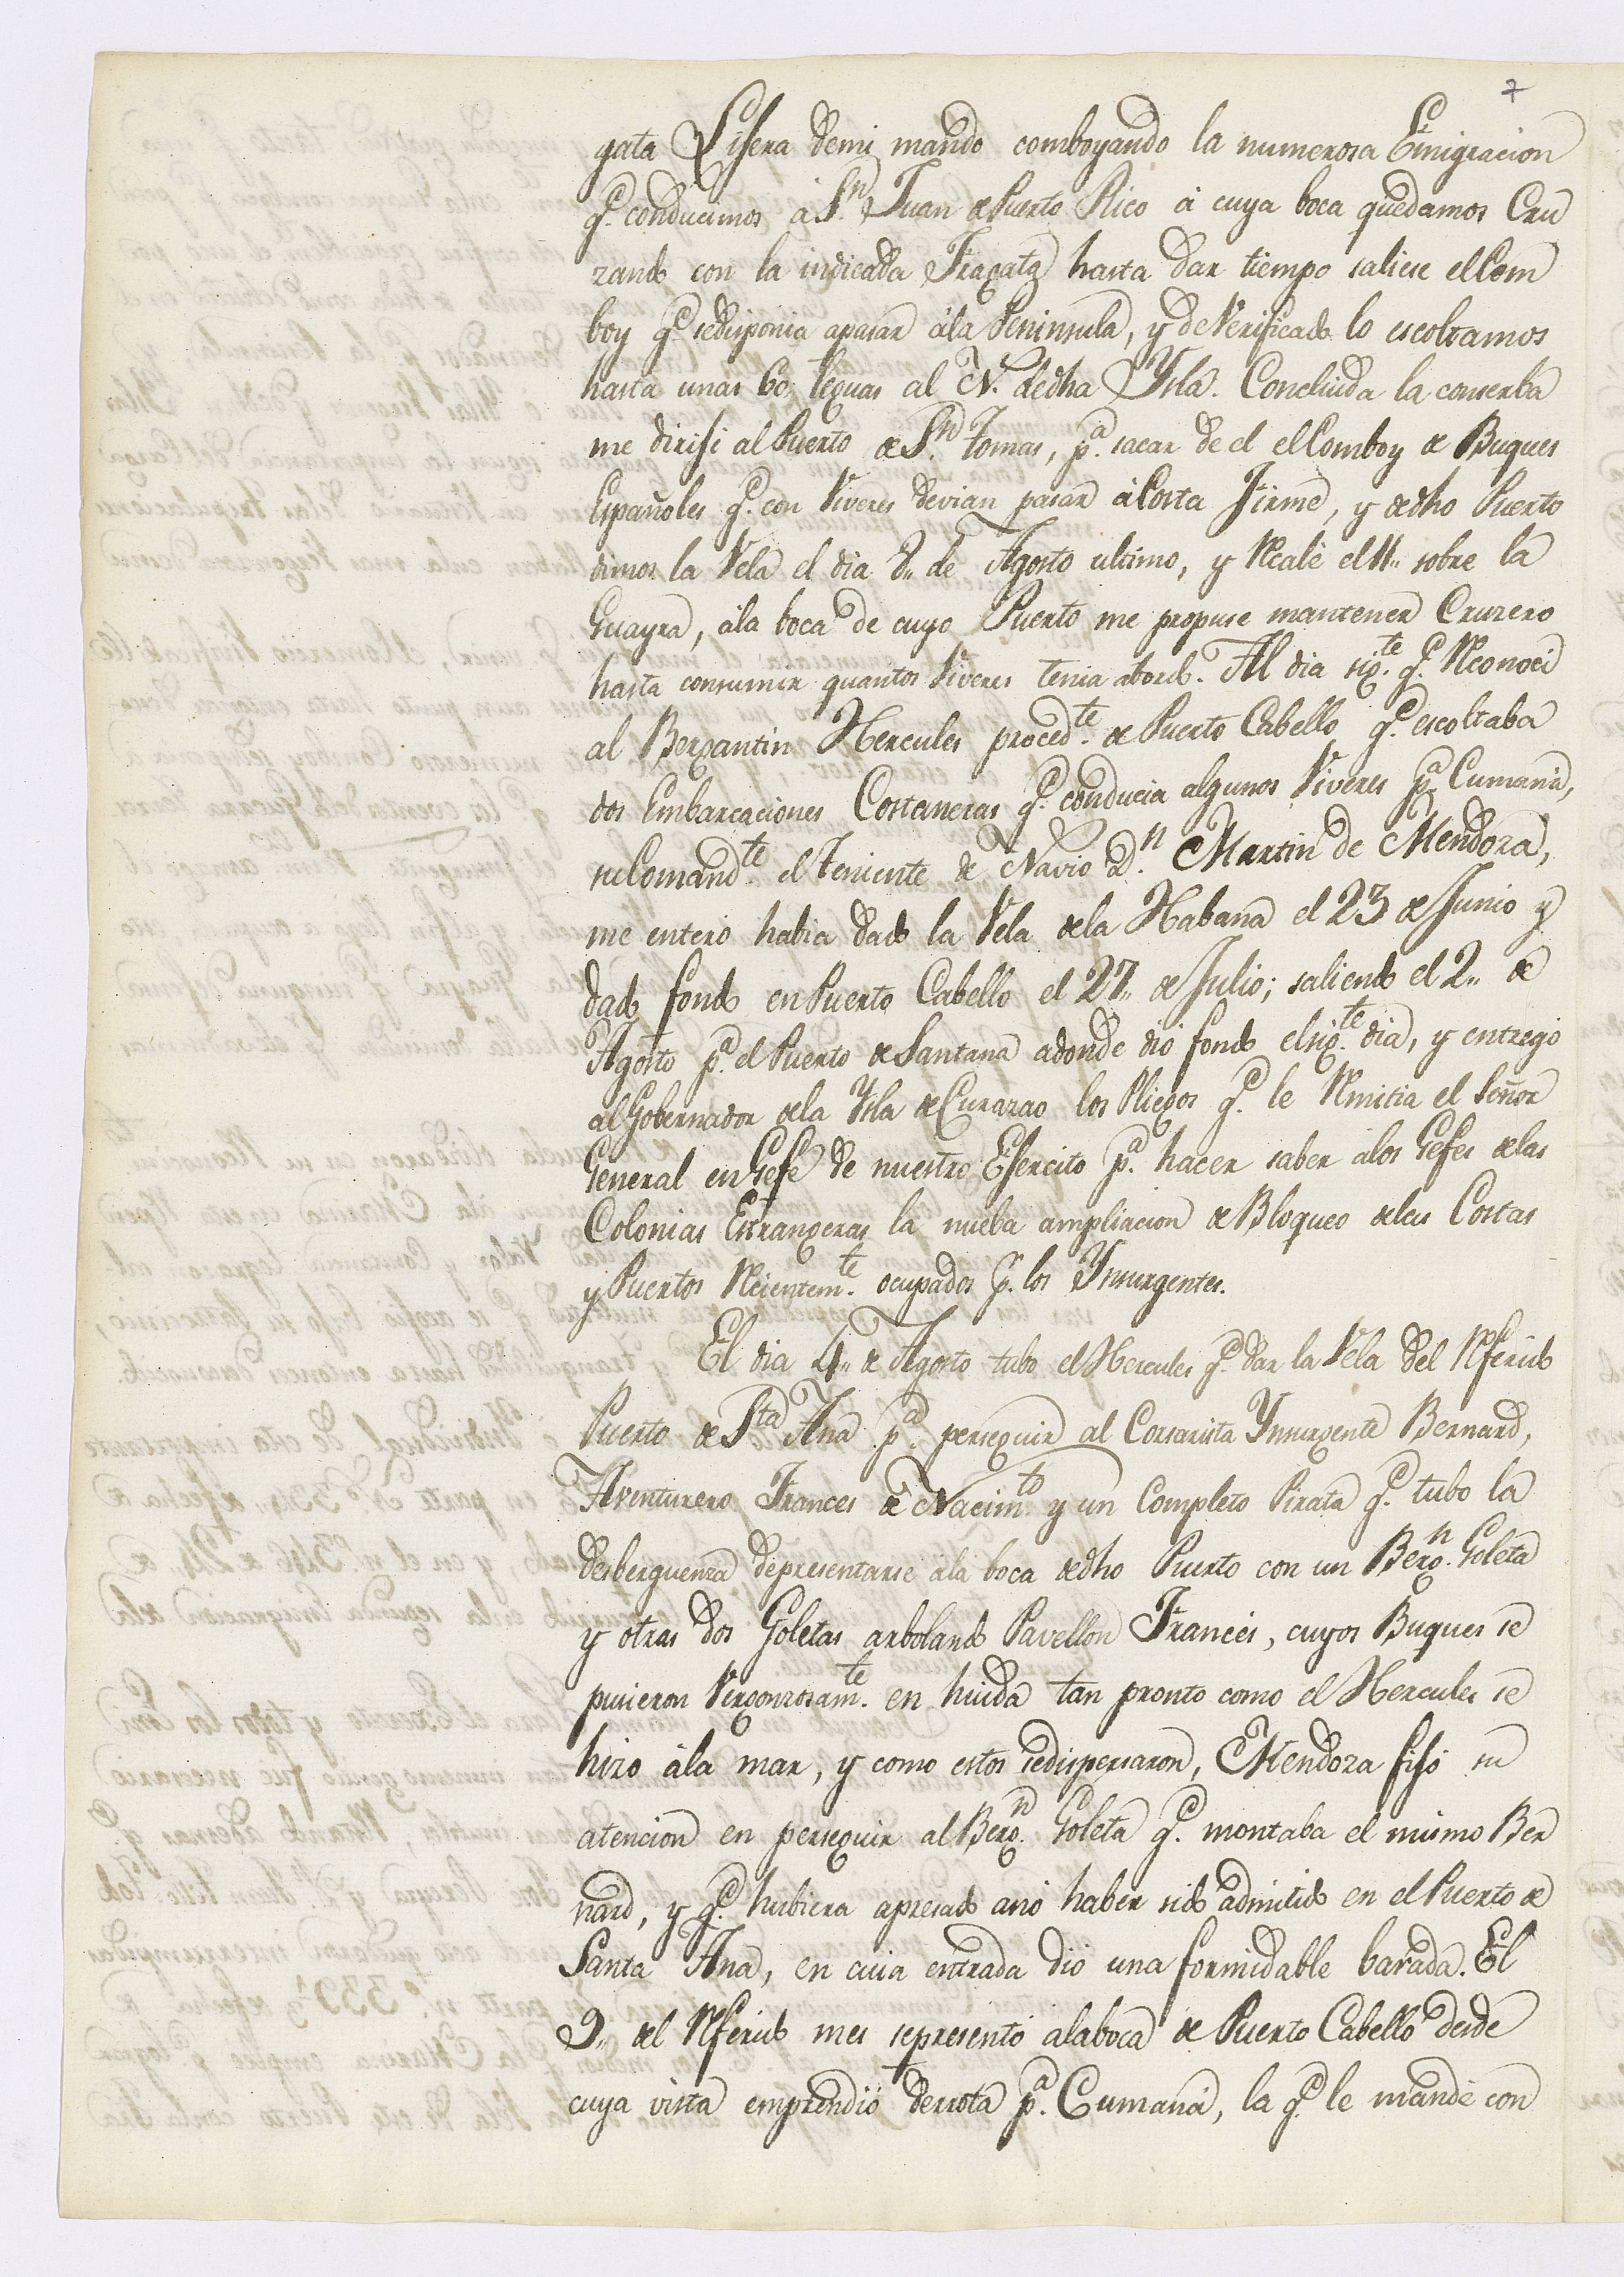 7
gata Lijera demi mando comboyando la numerosa Emigracion
q.e conducimos à S.n Juan de Puerto Rico à cuya boca quedamos Cru
zando con la indicada Fragata hasta dar tiempo saliese el Com
boy q.e sedisponia apasar àla Peninsula, y de Verificado lo escoltamos
hasta unas 60, leguas al N. dedha Ysla. Concluida la conserba
me dirijí al Puerto de S.n Tomas, p.a sacar de el el Comboy de Buques
Españoles q.e con Viveres devian pasar à Costa Firme, y dedho Puerto
dimos la Vela el dia 8,, de Agosto ultimo, y Recalé el 11,, sobre la
Guayra, àla boca de cuyo Puerto me propuse mantener Cruzero
hasta consumir quantos Viveres tenia abordo. Al dia sig.te q.e Reconocí
al Bergantin Hercules proced.te de Puerto Cabello q.e escoltaba
dos Embarcaciones Costaneras q.e conducia algunos Viveres p.a Cumaná,
su Comand.te el Teniente de Navio D.n Martin de Mendoza,
me enteró habia dado la Vela dela Habana el 23 de Junio y
dado fondo en Puerto Cabello el 27,, de Julio; saliendo el 2,, de
Agosto p.a el Puerto de Santana adonde dió fondo el sig.te dia, y entregó
al Gobernador dela Ysla de Curazao los Pliegos q.e le Rmitia el Señor
General en Gefe de nuestro Ejercito p.a hacer saber alos Gefes delas
Colonias Estrangeras la nueba ampliacion de Bloqueo delas Costas
y Puertos Recientem.te ocupados p.r los Ynsurgentes.
El dia 4,, de Agosto tubo el Hercules q.e dar la Vela del Rferido
Puerto de S.ta Ana p.a perseguir al Corsarista Ynsurgente Bernard,
Aventurero Frances de Nacim.to y un Completo Pirata q.e tubo la
desberguenza depresentarse àla boca dedho Puerto con un Berg.n Goleta
y otras dos Goletas arbolando Pavellon Francés, cuyos Buques se
pusieron Vergonzosam.te en huida tan pronto como el Hercules se
hizo àla mar, y como estos sedispersaron, Mendoza fijó su
atencion en perseguir al Berg.n Goleta q.e montaba el mismo Ber
nard, y q.e hubiera apresado anó haber sido admitido en el Puerto de
Santa Ana, en cuia entrada dió una formidable barada. El
9,, del Rferido mes sepresentó alaboca de Puerto Cabello desde
cuya vista emprendió derrota p.a Cumaná, la q.e le mandé con